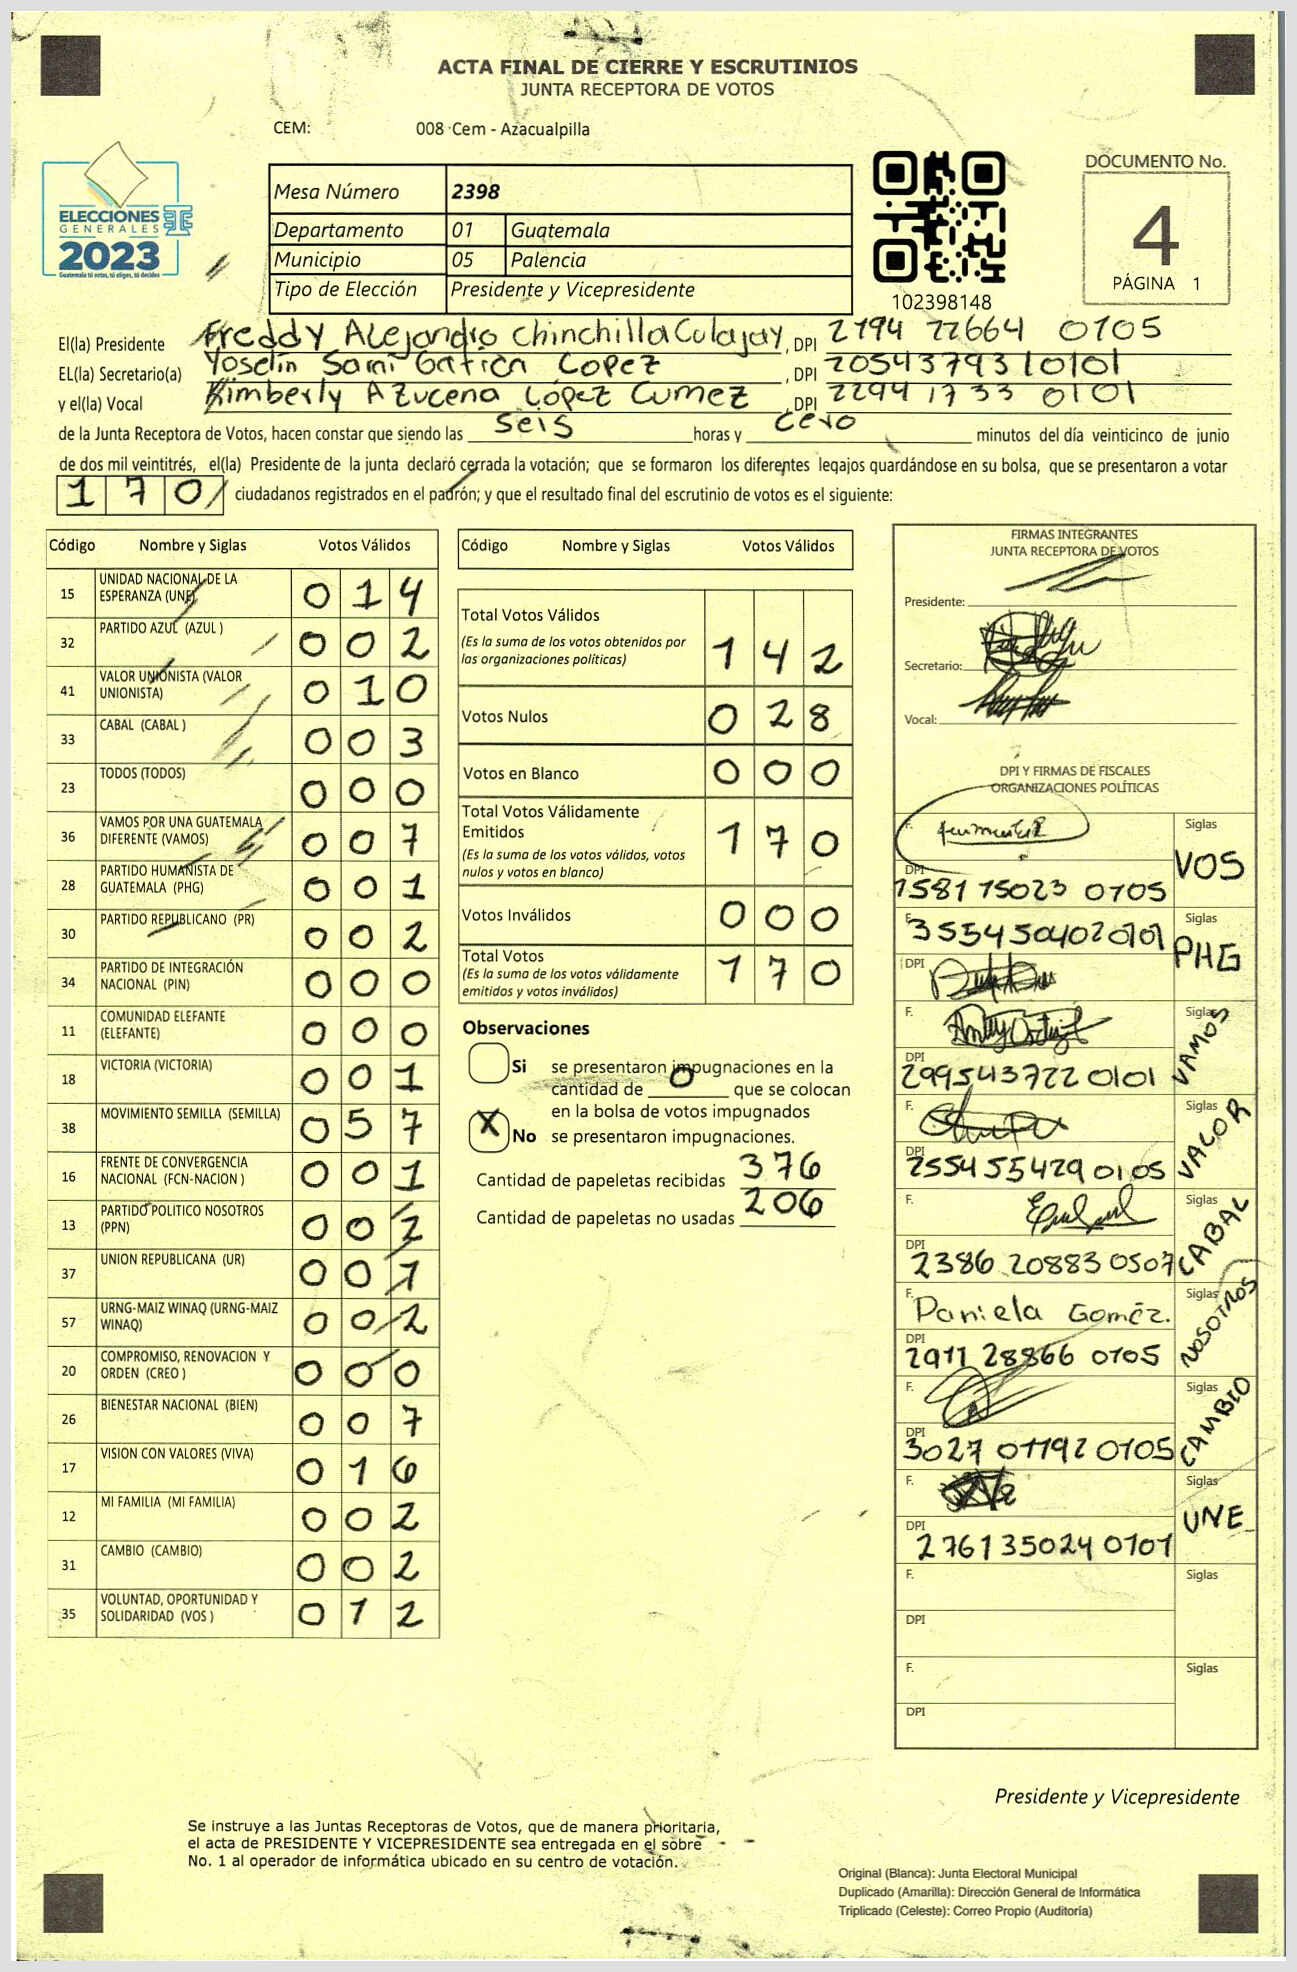 ACTA FINAL DE CIERRE Y ESCRUTINIOS
JUNTA RECEPTORA DE VOTOS
CEM: 008 Cem - Azacualpilla
ELECCIONES
GENERALES
2023
Guatemala tú votas, tú eliges, tú decides
Mesa Número 2398
Departamento 01 Guatemala
Municipio 05 Palencia
Tipo de Elección Presidente y Vicepresidente
102398148
DOCUMENTO No.
4
PÁGINA 1
El(la) Presidente Freddy Alejandro Chinchilla Culajay, DPI 2194 22664 0105
EL(la) Secretario(a) Yoselin Sami Gatica Lopez, DPI 2054379310101
y el(la) Vocal Kimberly Azucena López Cumez, DPI 2294 1733 0101
de la Junta Receptora de Votos, hacen constar que siendo las seis horas y cero minutos del día veinticinco de junio
de dos mil veintitrés, el(la) Presidente de la junta declaró cerrada la votación; que se formaron los diferentes legajos guardándose en su bolsa, que se presentaron a votar
170 ciudadanos registrados en el padrón; y que el resultado final del escrutinio de votos es el siguiente:
Código Nombre y Siglas Votos Válidos
15 UNIDAD NACIONAL DE LA ESPERANZA (UNE) 014
32 PARTIDO AZUL (AZUL ) 002
41 VALOR UNIONISTA (VALOR UNIONISTA) 010
33 CABAL (CABAL ) 003
23 TODOS (TODOS) 000
36 VAMOS POR UNA GUATEMALA DIFERENTE (VAMOS) 007
28 PARTIDO HUMANISTA DE GUATEMALA (PHG) 001
30 PARTIDO REPUBLICANO (PR) 002
34 PARTIDO DE INTEGRACIÓN NACIONAL (PIN) 000
11 COMUNIDAD ELEFANTE (ELEFANTE) 000
18 VICTORIA (VICTORIA) 001
38 MOVIMIENTO SEMILLA (SEMILLA) 057
16 FRENTE DE CONVERGENCIA NACIONAL (FCN-NACION ) 001
13 PARTIDO POLITICO NOSOTROS (PPN) 002
37 UNION REPUBLICANA (UR) 001
57 URNG-MAIZ WINAQ (URNG-MAIZ WINAQ) 002
20 COMPROMISO, RENOVACION Y ORDEN (CREO ) 000
26 BIENESTAR NACIONAL (BIEN) 007
17 VISION CON VALORES (VIVA) 016
12 MI FAMILIA (MI FAMILIA) 002
31 CAMBIO (CAMBIO) 002
35 VOLUNTAD, OPORTUNIDAD Y SOLIDARIDAD (VOS ) 012
Código Nombre y Siglas Votos Válidos
Total Votos Válidos 142
(Es la suma de los votos obtenidos por
las organizaciones políticas)
Votos Nulos 028
Votos en Blanco 000
Total Votos Válidamente
Emitidos 170
(Es la suma de los votos válidos, votos
nulos y votos en blanco)
Votos Inválidos 000
Total Votos 170
(Es la suma de los votos válidamente
emitidos y votos inválidos)
Observaciones
Si se presentaron impugnaciones en la
cantidad de 0 que se colocan
en la bolsa de votos impugnados
X No se presentaron impugnaciones.
Cantidad de papeletas recibidas 376
Cantidad de papeletas no usadas 206
FIRMAS INTEGRANTES
JUNTA RECEPTORA DE VOTOS
Presidente:
Secretario:
Vocal:
DPI Y FIRMAS DE FISCALES
ORGANIZACIONES POLÍTICAS
F. Siglas VOS
DPI 1581 15023 0705
F. 3554504020101 Siglas PHG
DPI
F. Siglas VAMOS
DPI 2995437220101
F. Siglas VALOR
DPI 2554554290105
F. Siglas CABAL
DPI 2386 20883 0507
F. Daniela Goméz. Siglas NOSOTROS
DPI 2911 28866 0105
F. Siglas CAMBIO
DPI 3027 01192 0105
F. Siglas UNE
DPI 2761350240101
F. Siglas
DPI
F. Siglas
DPI
Presidente y Vicepresidente
Se instruye a las Juntas Receptoras de Votos, que de manera prioritaria,
el acta de PRESIDENTE Y VICEPRESIDENTE sea entregada en el sobre
No. 1 al operador de informática ubicado en su centro de votación.
Original (Blanca): Junta Electoral Municipal
Duplicado (Amarilla): Dirección General de Informática
Triplicado (Celeste): Correo Propio (Auditoría)